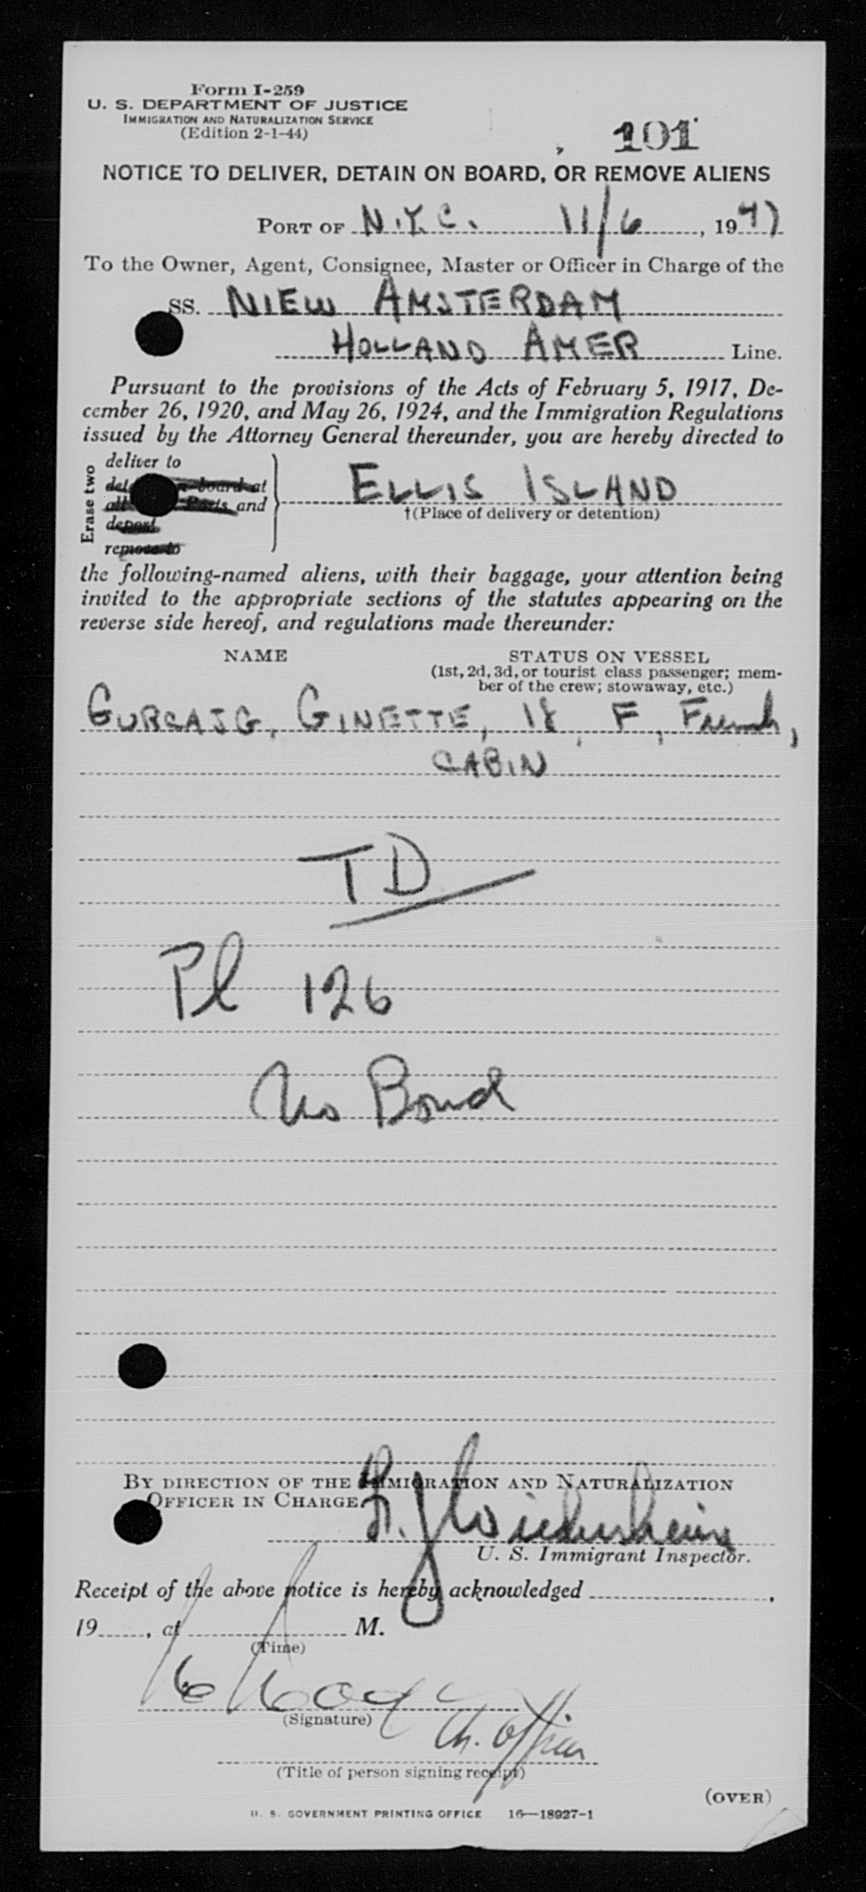 Form I-259
U. S. DEPARTMENT OF JUSTICE
IMMIGRATION AND NATURALIZATION SERVICE
(Edition 2-1-44)
101
NOTICE TO DELIVER, DETAIN ON BOARD, OR REMOVE ALIENS
PORT OF N.Y.C. 11/6, 1947
To the Owner, Agent, Consignee, Master or Officer in Charge of the
SS. NIEW AMSTERDAM
HOLLAND AMER Line.
Pursuant to the provisions of the Acts of February 5, 1917, De-
cember 26, 1920, and May 26, 1924, and the Immigration Regulations
issued by the Attorney General thereunder, you are hereby directed to
Erase two
deliver to
board at
and
depost
remove to
ELLIS ISLAND
†(Place of delivery or detention)
the following-named aliens, with their baggage, your attention being
invited to the appropriate sections of the statutes appearing on the
reverse side hereof, and regulations made thereunder:
NAME STATUS ON VESSEL
(1st, 2d, 3d, or tourist class passenger; mem-
ber of the crew; stowaway, etc.)
GINETTE, 18, F, French,
CABIN
TD
Pl 126
No Bond
BY DIRECTION OF THE IMMIGRATION AND NATURALIZATION
OFFICER IN CHARGE.
U. S. Immigrant Inspector.
Receipt of the above notice is hereby acknowledged ,
19 , at M.
(Time)
(Signature)
Ch. Officer
(Title of person signing receipt)
(OVER)
U. S. GOVERNMENT PRINTING OFFICE 16—18927-1